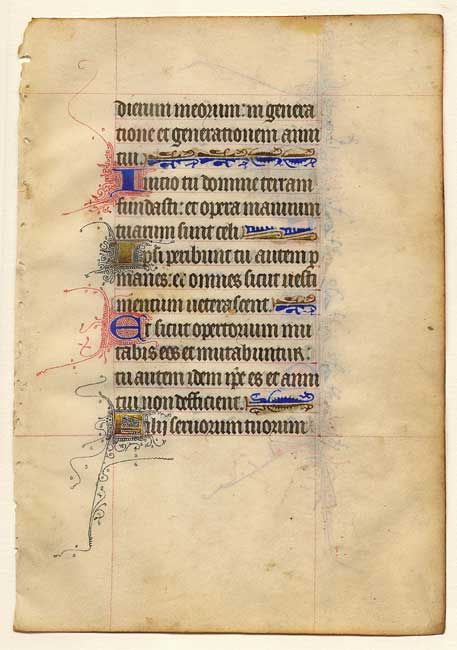 dierum meorum: in genera
tione et generationem anni
tui.
Inicio tu domine terram
fundasti: et opera manuum
tuarum sunt celi
Ipsi peribunt tu autem p
manes: et omnes sicut uesti
mentum ueterascent.
Et sicut opertorium mu
tabis eos et mutabuntur:
tu autem idem ip̄e es et anni
tui non defficient.
Filij seruorum tuorum